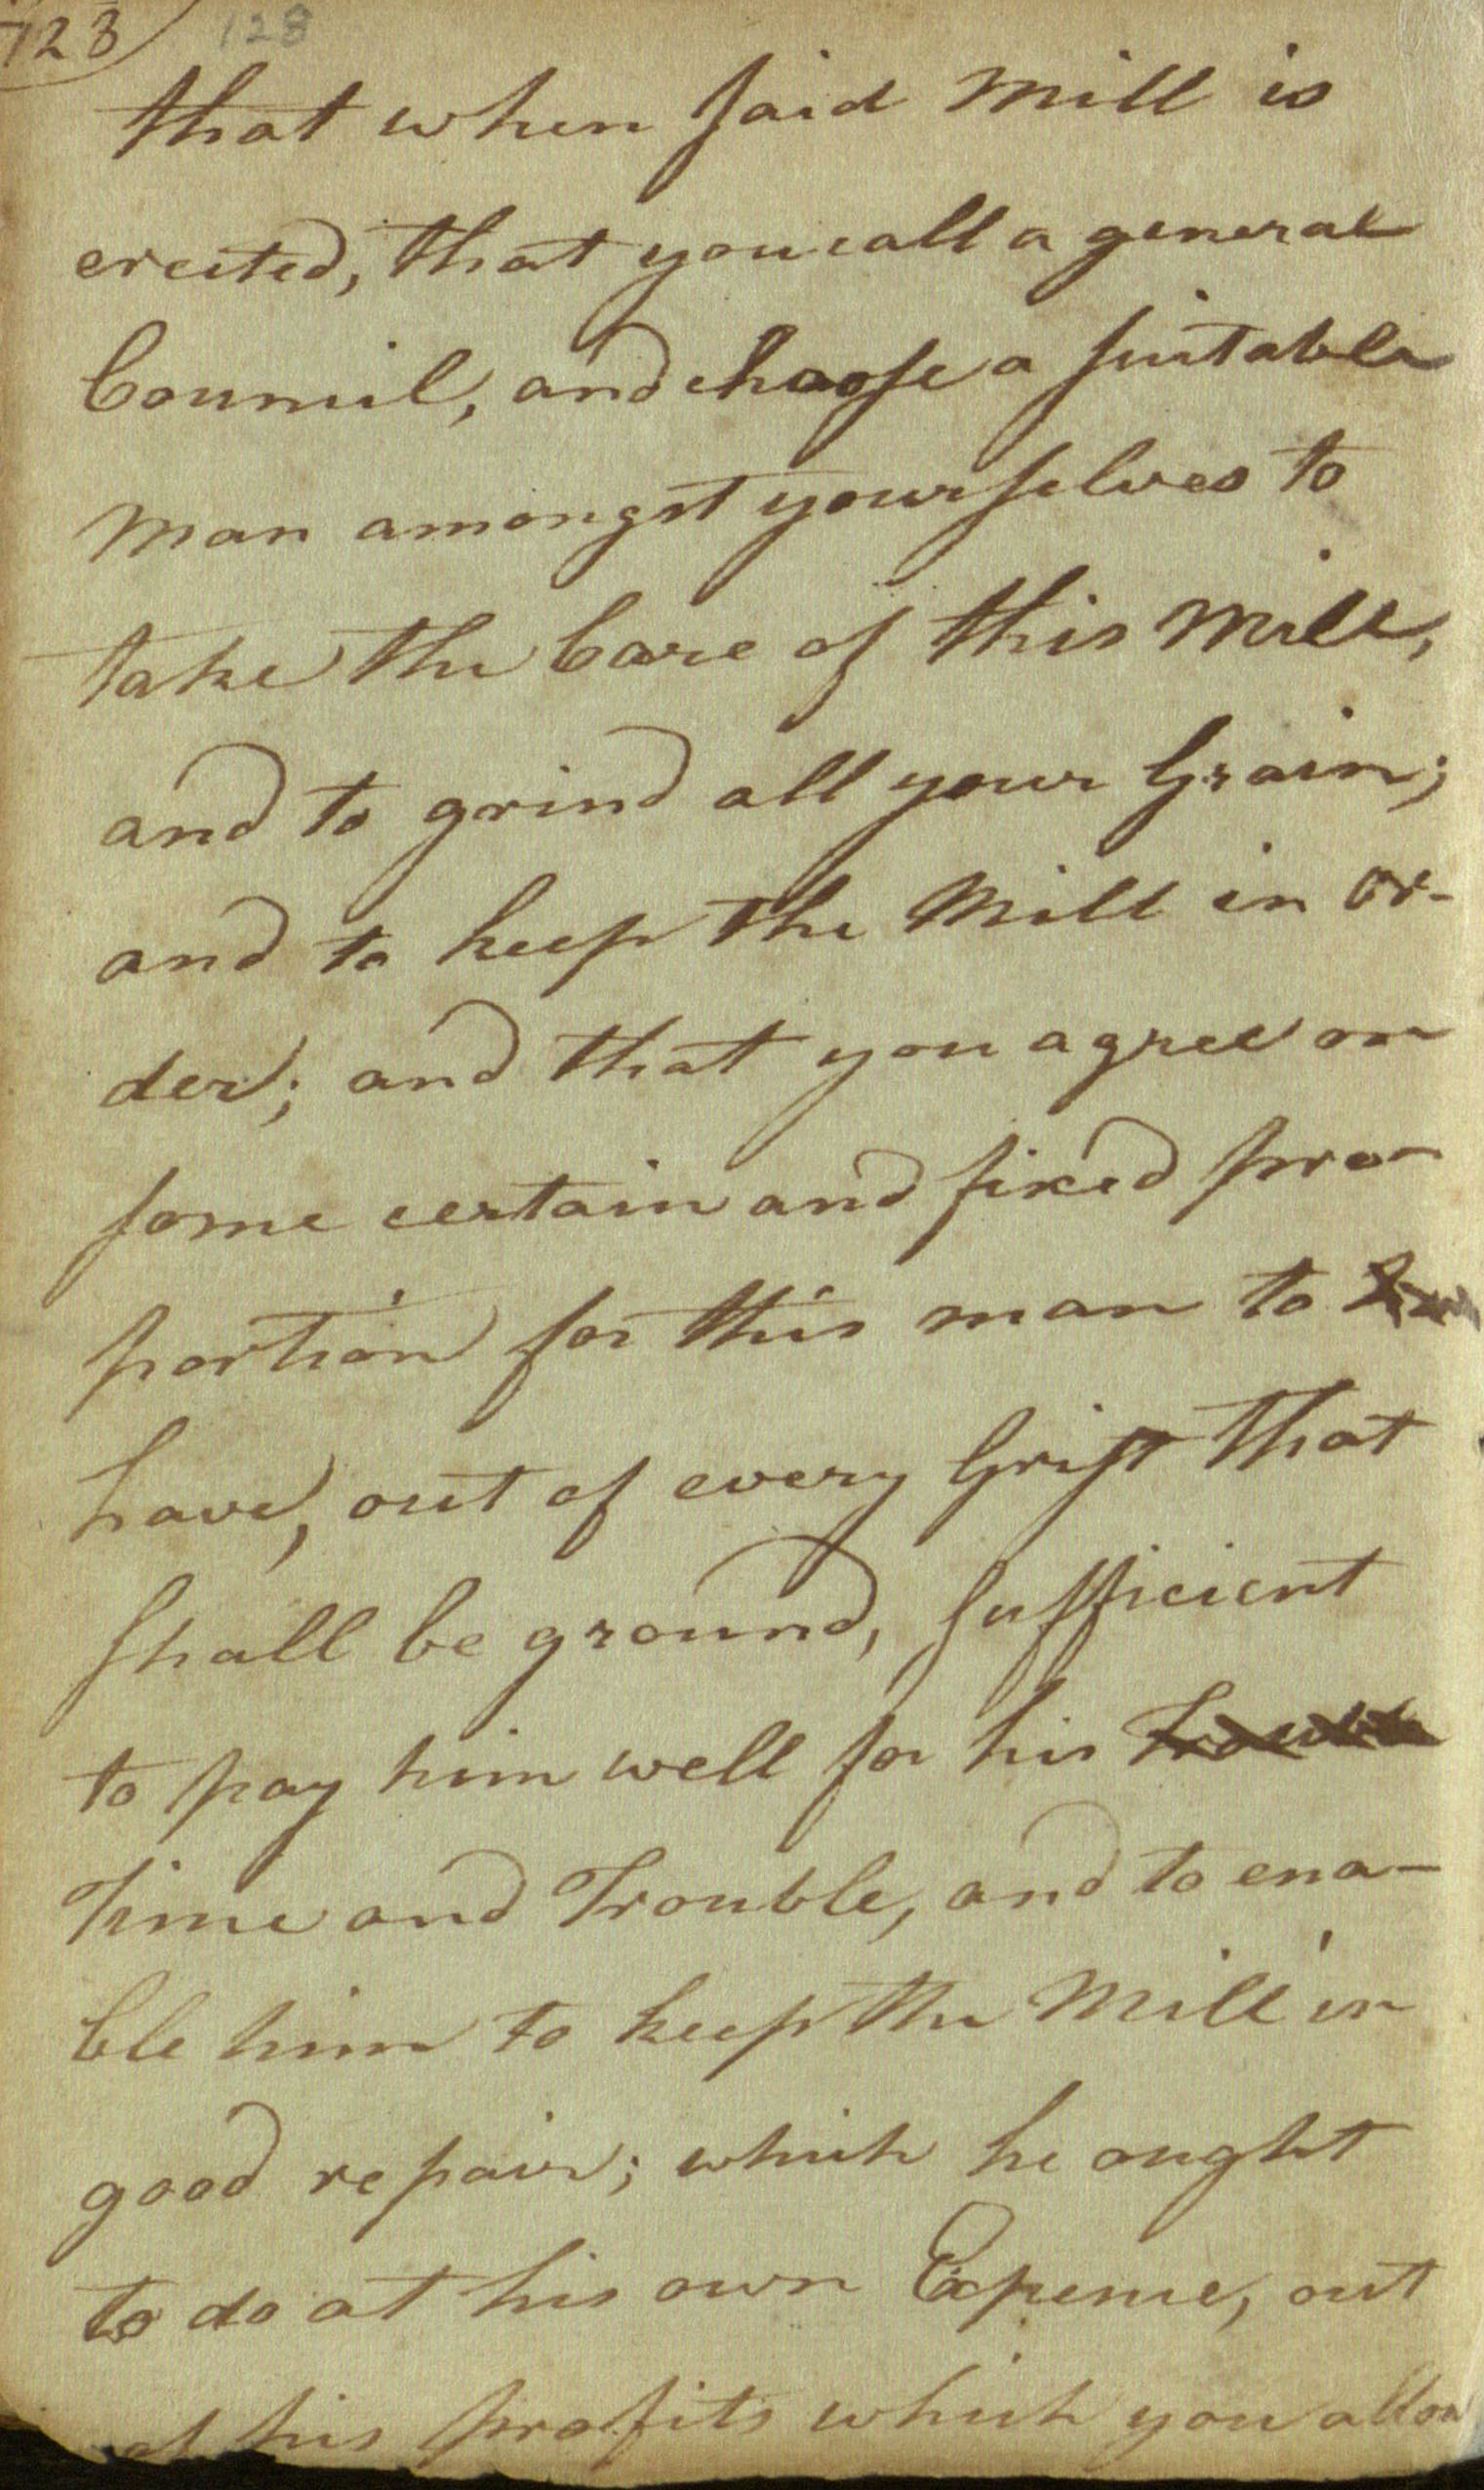 123 128
that when said Mill is
erected, that you call a general
Council, and choose a suitable
Man amongst yourselves to
take the Care of this Mill,
and to grind all your Grain;
and to keep the Mill in or-
der; and that you agree on
some certain and fixed pro-
portion for this man to
have, out of every Grist that
shall be ground, sufficient
to pay him well for his
Time and Trouble, and to ena-
ble him to keep the Mill in
good repair; which he ought
to do at his own Expense, out
of his profits which you allow